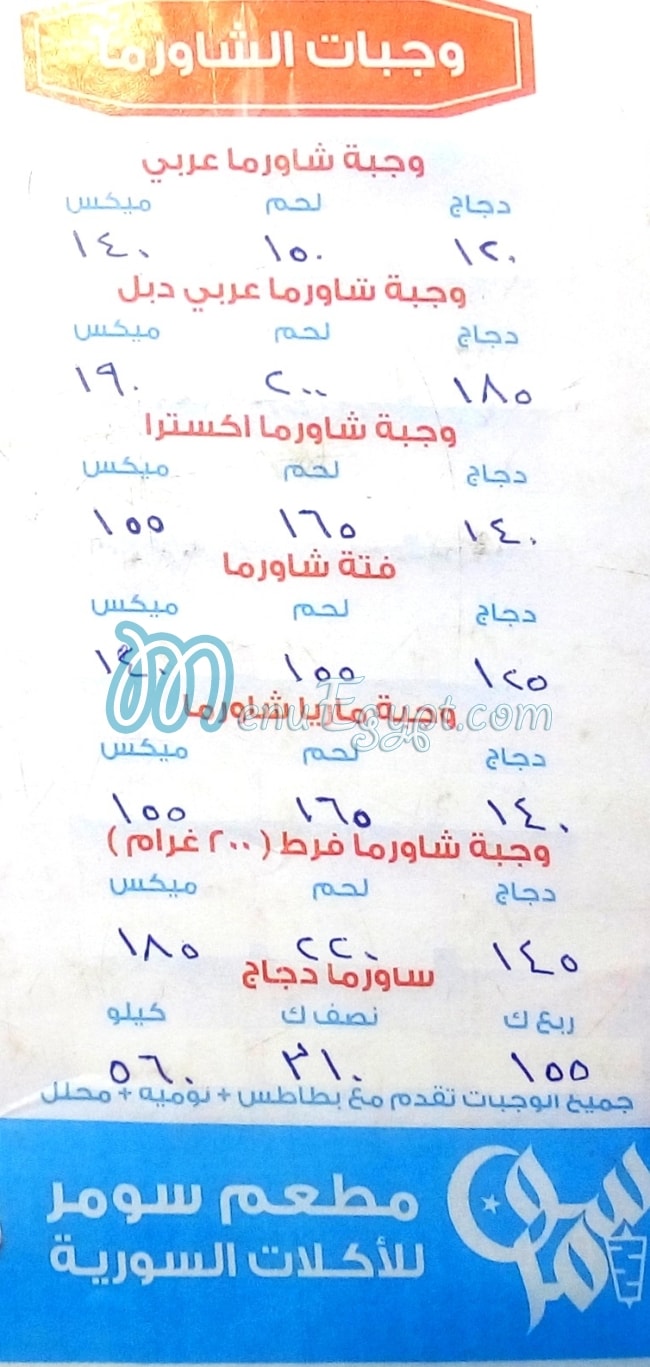 وجبات الشاورما
وجبة شاورما عربي
دجاج لحم ميكس
١٢٠ ١٥٠ ١٤٠
وجبة شاورما عربي دبل
دجاج لحم ميكس
١٨٥ ٢٠٠ ١٩٠
وجبة شاورما اكسترا
دجاج لحم ميكس
١٤٠ ١٦٥ ١٥٥
فتة شاورما
دجاج لحم ميكس
١٢٥ ١٥٥ ١٤٠
menuEgypt.com
وجبة ماريا شاورما
دجاج لحم ميكس
١٤٠ ١٦٥ ١٥٥
وجبة شاورما فرط (٢٠٠ غرام)
دجاج لحم ميكس
١٤٥ ٢٢٠ ١٨٥
ساورما دجاج
ربع ك نصف ك كيلو
١٥٥ ٣١٠ ٥٦٠
جميع الوجبات تقدم مع بطاطس + توميه + مخلل
سومر
مطعم سومر
للأكلات السورية